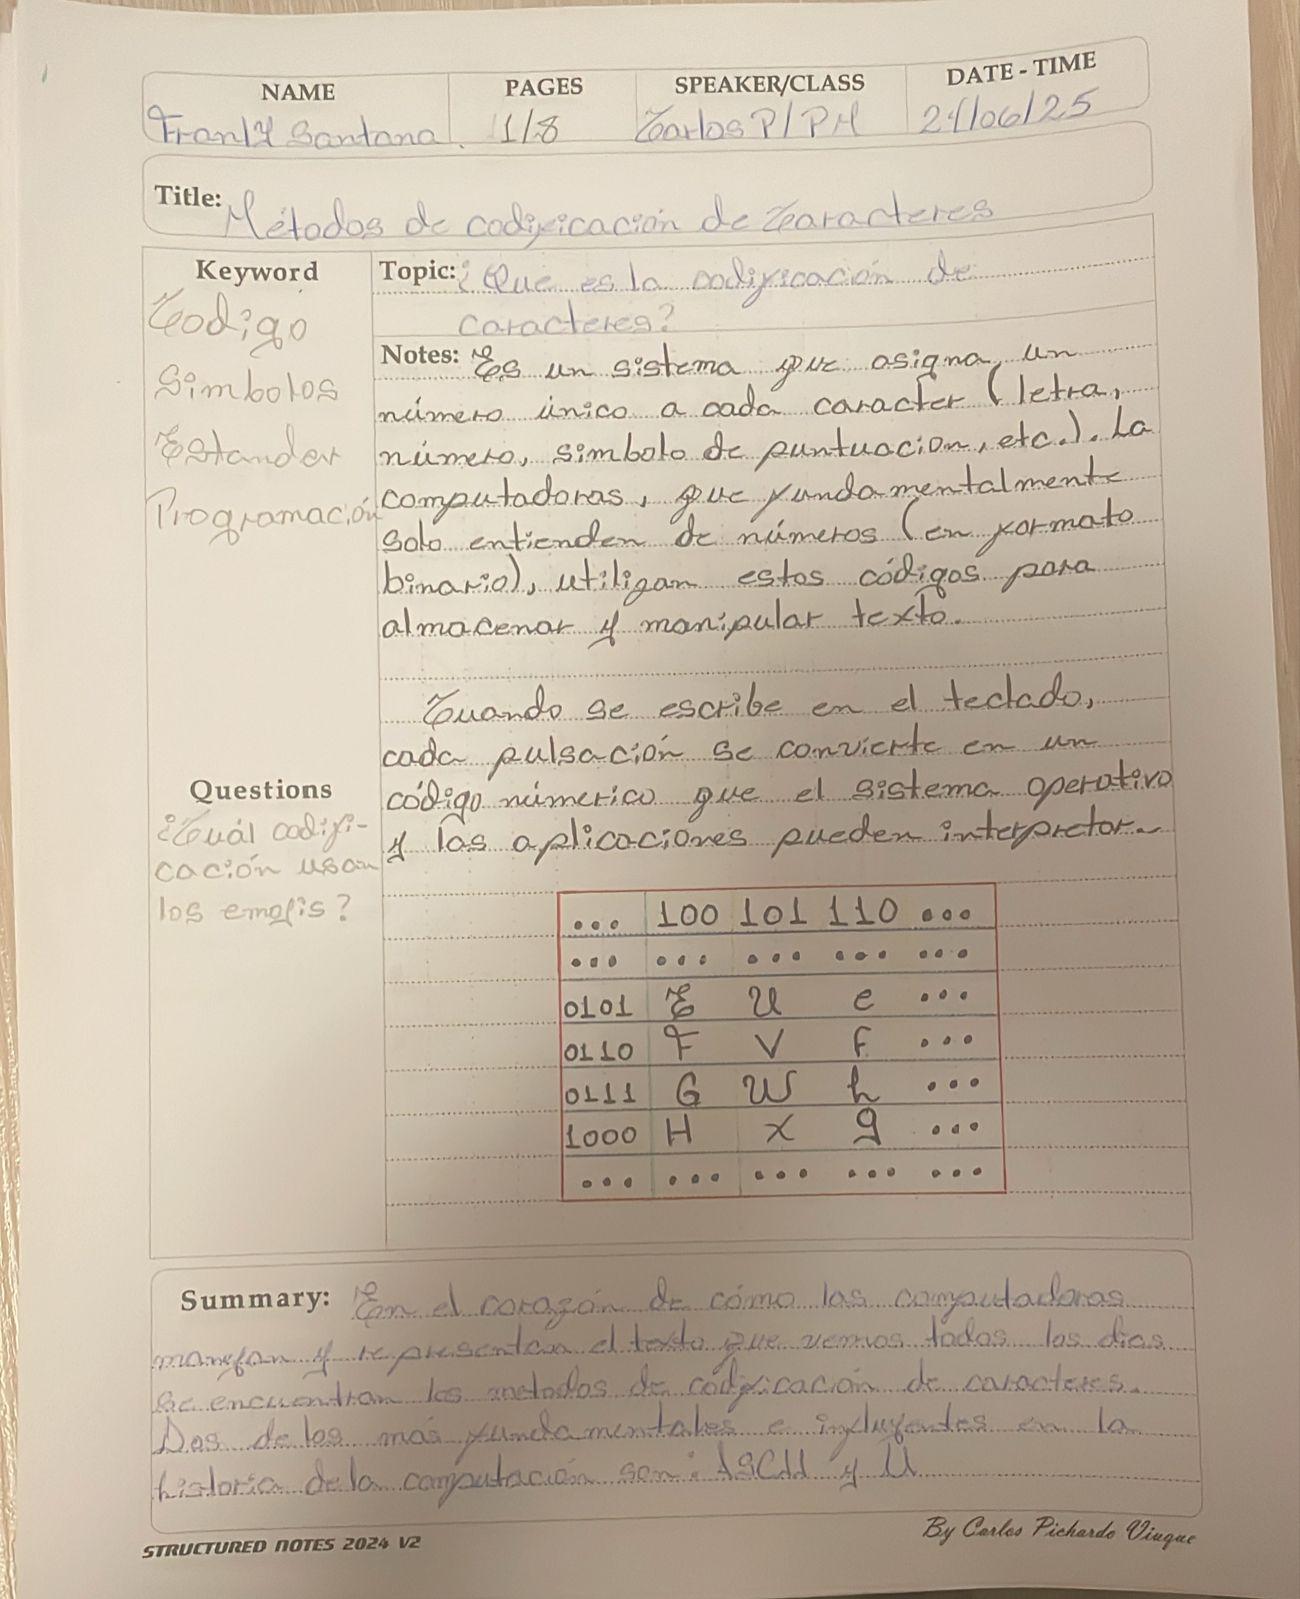 NAME PAGES SPEAKER/CLASS DATE - TIME
Franly Santana. 1/8 Carlos P/PM 24/06/25
Title: Métodos de codificación de Caracteres
Keyword
Codigo
Simbolos
Estander
Programación
Topic: ¿Que es la codificación de
caracteres?
Notes: Es un sistema que asigna un
número único a cada caracter (letra,
número, simbolo de puntuacion, etc.). La
computadoras, que fundamentalmente
solo entienden de números (en formato
binario), utilizan estos códigos para
almacenar y manipular texto.
Cuando se escribe en el teclado,
cada pulsación se convierte en un
código númerico que el sistema operativo
y las aplicaciones pueden interpretar.
Questions
¿Cuál codifi-
cación usan
los emojis?
... 100 101 110 ...
... ... ... ... ...
0101 E U e ...
0110 F V f ...
0111 G W h ...
1000 H X g ...
... ... ... ... ...
Summary: En el corazón de cómo las computadoras
manejan y representan el texto que vemos todos los dias
se encuentran los metodos de codificación de caracteres.
Dos de los más fundamentales e influyentes en la
historia de la computación son: ASCII y U
STRUCTURED NOTES 2024 V2
By Carlos Pichardo Viuque